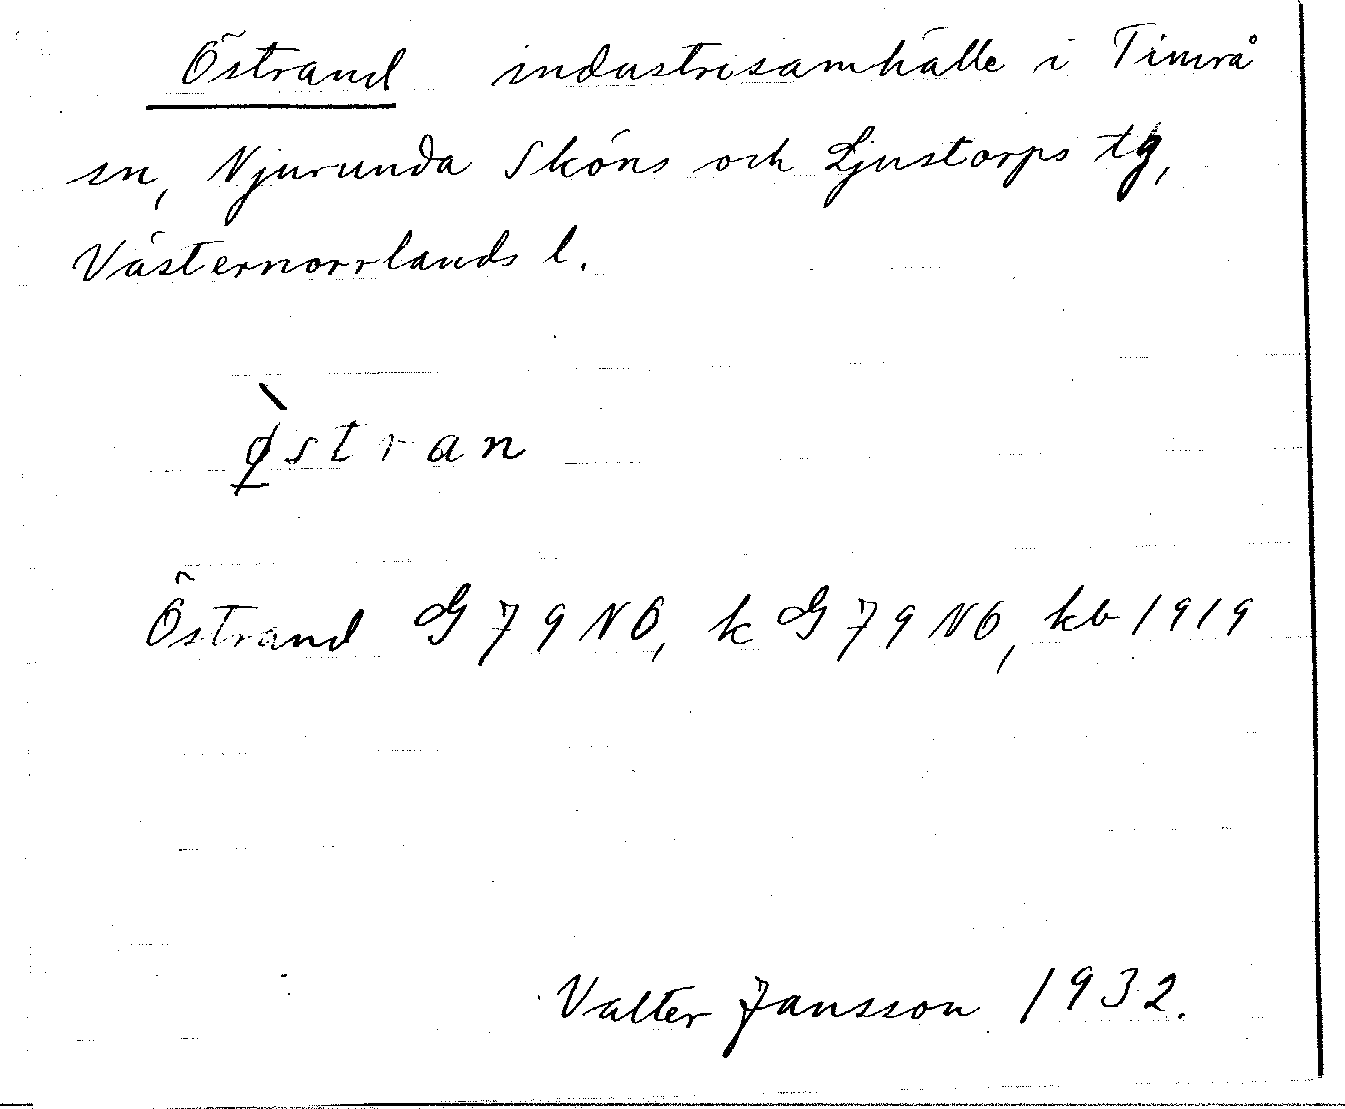 Östrand industrisamhälle i Timrå
sn, Njurunda Sköns och Ljustorps tg,
Västernorrlands l.
ø̀stran
Östrand G 79 NO, k G 79 NO, kb 1919
Valter Jansson 1932.